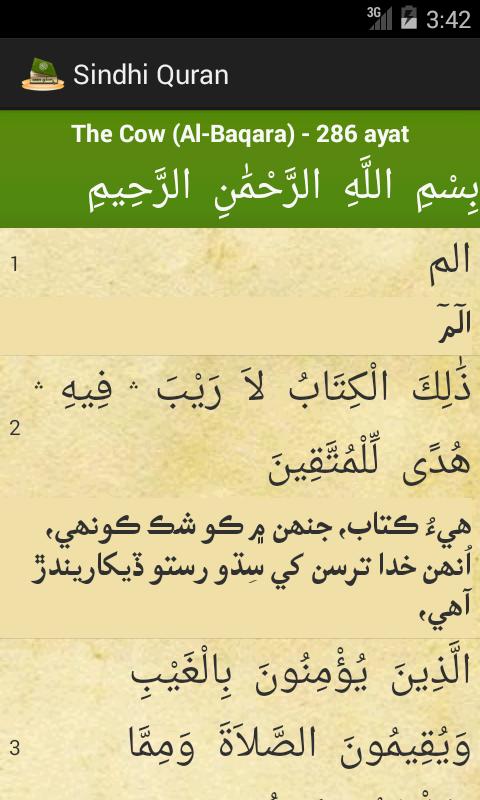 3G 3:42
Sindhi Quran
The Cow (Al-Baqara) - 286 ayat
بِسْمِ اللَّهِ الرَّحْمَٰنِ الرَّحِيمِ
1
الم
الٓمٓ
2
ذَٰلِكَ الْكِتَابُ لاَ رَيْبَ ۛ فِيهِ ۛ
هُدًى لِّلْمُتَّقِينَ
هيءُ ڪتاب, جنھن ۾ ڪو شڪ ڪونھي,
اُنھن خدا ترسن کي سِڌو رستو ڏيکاريندڙ
آھي,
3
الَّذِينَ يُؤْمِنُونَ بِالْغَيْبِ
وَيُقِيمُونَ الصَّلاَةَ وَمِمَّا